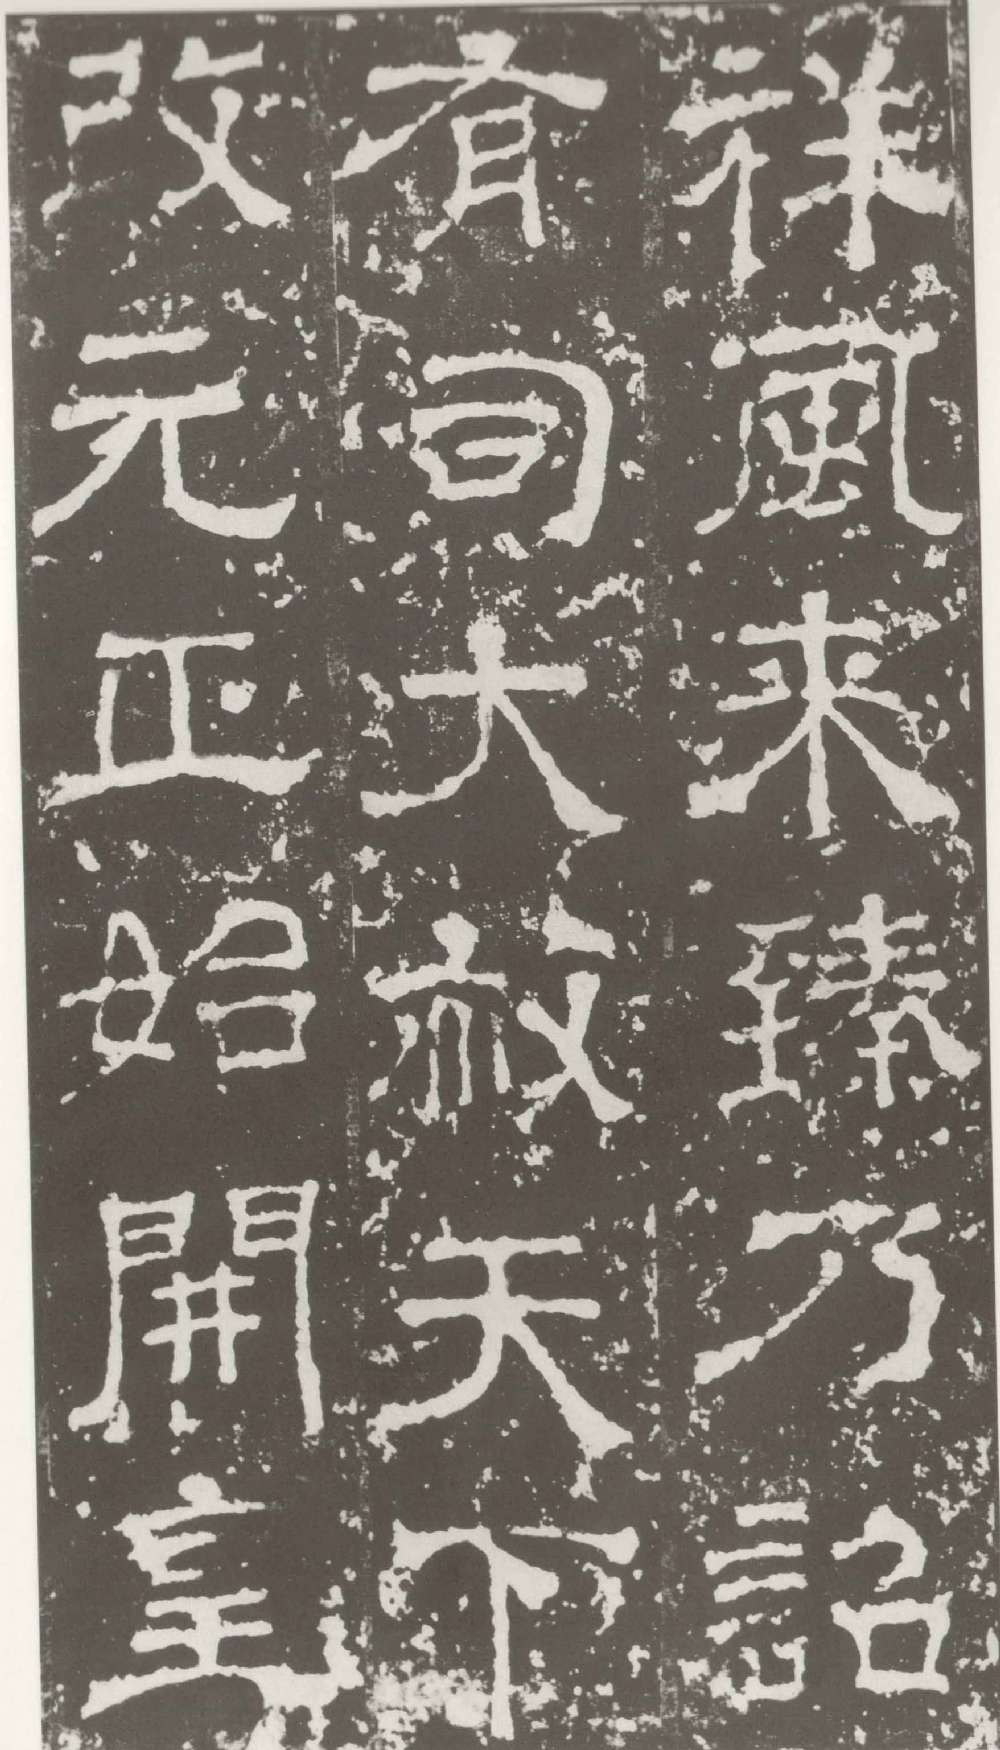 祥風来臻乃詔
有司大赦天下
改元正始開皇